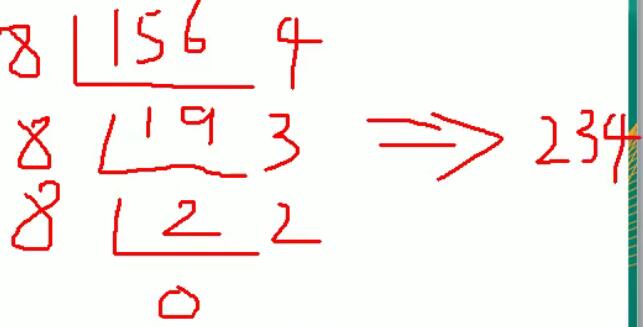 8 156 4
8 19 3 ⇒ 234
8 2 2
0